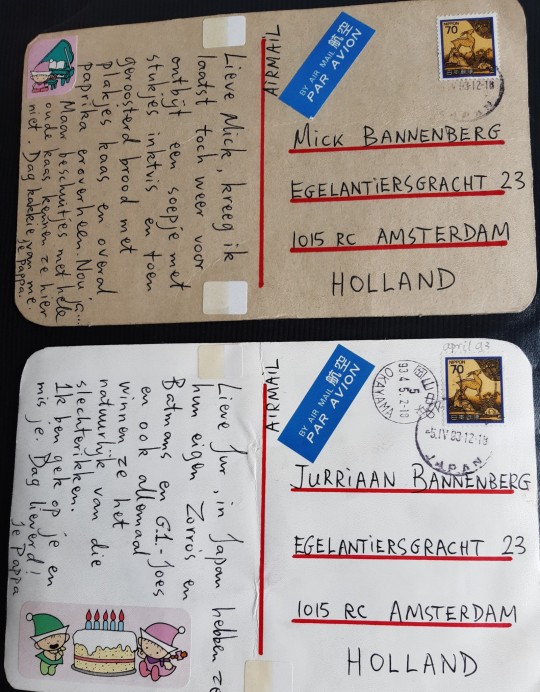 Lieve Mick, kreeg ik
laatst toch weer voor
ontbijt een soepje met
stukjes inktvis en toen
geroosterd brood met
plakjes kaas en overal
paprika eroverheen. Nou ja...
Maar beschuitjes met hele
oude kaas kennen ze hier
niet. Dag kakkie van me.
Je Pappa.
AIRMAIL
BY AIR MAIL 航空
PAR AVION
NIPPON
70
93.12-18
JAPAN
MICK BANNENBERG
EGELANTIERSGRACHT 23
1015 RC AMSTERDAM
HOLLAND
Lieve Jur, in Japan hebben ze
hun eigen Zorro's en
Batmans en G.I-Joes
en ook allemaal
winnen ze het
natuurlijk van die
slechterikken.
Ik ben gek op je en
mis je. Dag lieverd!
Je Pappa
AIRMAIL
BY AIR MAIL 航空
PAR AVION
岡山
93.4.5
OKAYAMA
april 93
NIPPON
70
-5.IV 93.12-18
JAPAN
JURRIAAN BANNENBERG
EGELANTIERSGRACHT 23
1015 RC AMSTERDAM
HOLLAND